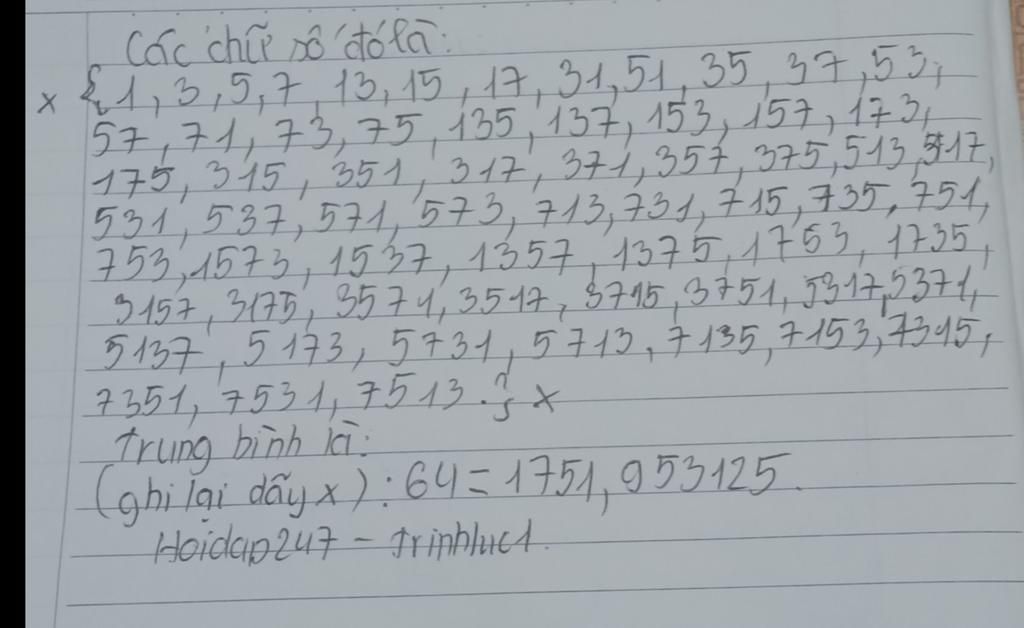 Các chữ số đó là:
x {1, 3, 5, 7, 13, 15, 17, 31, 51, 35, 37, 53,
57, 71, 73, 75, 135, 137, 153, 157, 173,
175, 315, 351, 317, 371, 357, 375, 513, 517,
531, 537, 571, 573, 713, 731, 715, 735, 751,
753, 1573, 1537, 1357, 1375, 1753, 1735,
3157, 3175, 3571, 3517, 3715, 3751, 5317, 5371,
5137, 5173, 5731, 5713, 7135, 7153, 7315,
7351, 7531, 7513.} x
trung bình là:
(ghi lại dãy x) : 64 = 1751,953125.
Hoidap247 - trinhluc1.